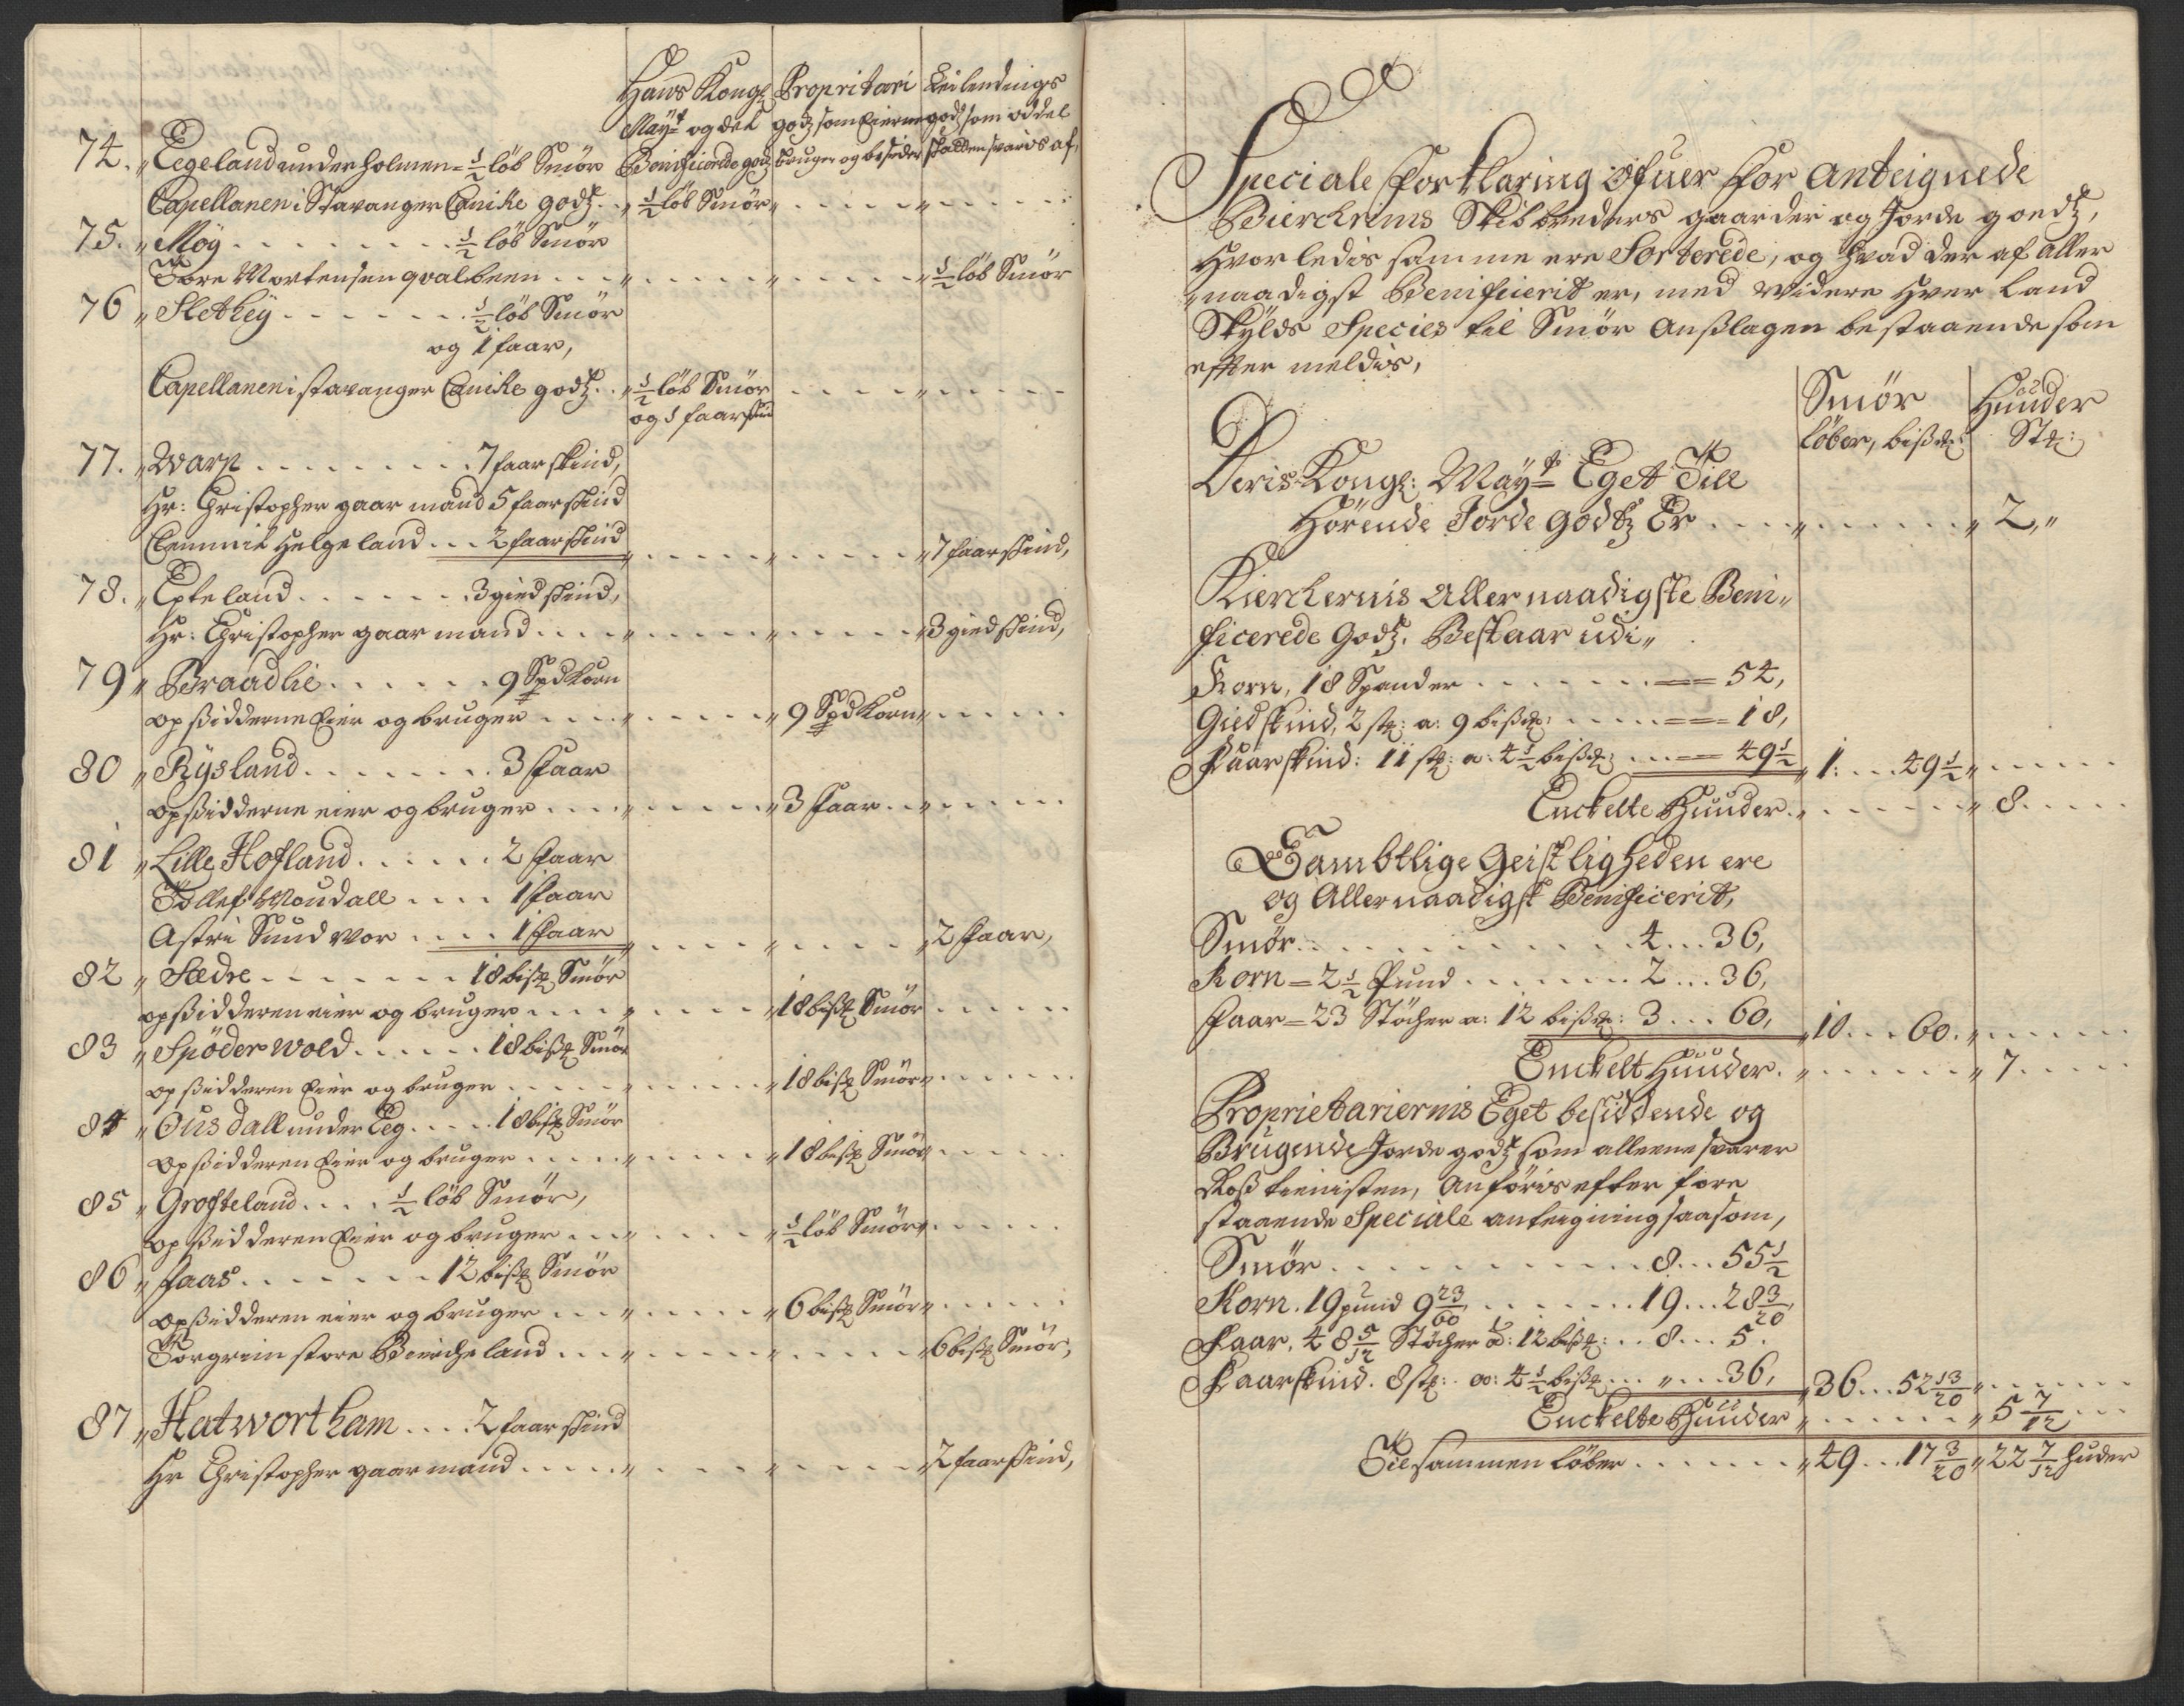 Hans Kongl Propritari Leilendings
Mayt og det godz som Eierne godz som oddel
Benificerede godz bruger og besider skatten svaris af,
74. „ Eegeland under holmen = ½ løb Smør
Capellanen i Stavanger Enike godz. . „ ½ løb Smør „ . . . . . „ . . . . .
75. „ Møy . . . . . . . . ½ løb Smør
Tore Mortensen qvalbeen . . . „ . . . . . „ . . . . . „ ½ løb Smør
76 „ Sletheÿ . . . . . . . ½ løb Smør
og 1 faar,
Capellanen i stavanger Enike godz. . „ ½ løb Smør . . . . „ . . . . .
og 1 faarskind
77. „ Warp . . . . . . . . 7 faarskind,
Hr: Christopher gaarmand 5 faarskind
Clemmit Helgeland . . . 2 faarskind „ . . . . . „ . . . . . „ 7 faarskind,
78. „ Epteland . . . . . . . 3 giedskind,
Hr: Christopher gaarmand . . . . „ . . . . . „ . . . . . „ 3 giedskind,
79 „ Braadlie . . . . . . 9 Spd Korn
opsidderne Eier og bruger . . . . „ . . . . . „ 9 Spd Korn „ . . . . .
80 „ Rÿsland . . . . . . . 3 faar
opsidderne eier og bruger . . . . „ . . . . . „ 3 faar . . „ . . . . .
81 „ Lille Hofland . . . . . 2 faar
Tollef Moudall . . . . 1 faar
Astri Sundvor . . . . 1 faar „ . . . . . „ . . . . . „ 2 faar,
82 „ Sædre . . . . . . . 18 bispd Smør
opsidderen eier og bruger . . . . „ . . . . „ 18 bispd Smør . . . . .
83 „ Spöderwold . . . . . 18 bispd Smør
opsidderen Eier og bruger . . . . „ . . . . . „ 18 bispd Smør „ . . . . .
84 „ Ousdall under Eeg . . . . 18 bispd Smør
opsidderen Eier og bruger . . . . „ . . . . . „ 18 bispd Smør . . . . .
85 „ Grofteland . . . . ½ løb Smør,
opsidderen Eier og bruger . . . „ . . . . „ ½ løb Smør „ . . . . .
86 „ faas . . . . . . . 12 bispd Smør
opsidderen eier og bruger . . . „ . . . . . „ 6 bispd Smør „ . . . . .
Torgrim store Bircheland . . . „ . . . . . „ . . . . . „ 6 bispd Smør,
87 „ Hatwortham . . . . 2 faarskind
Hr Christopher gaarmand . . . . . „ . . . . „ . . . . . „ 2 faarskind,
Speciale Forklaring ofuer For Anteignede
Bierchrems Skibbreders gaarder og Jorde goedz,
Hvorledis samme ere Sorterede, og hvad der af Aller
„naadigst Benificerit er, med widere hver Land
Skÿlds Species til Smør Anslagen bestaaende som
efter meldis,
Smør Huuder
løber, bispd: Stk:
Deris Kongl: Mayt Eget Till
Hørende Jorde Godtz Er . . . . „ . . . . . . „ 2 „
Kierchernis Allernaadigste Beni„
ficerede Godz. Bestaar udi„
Korn, 18 Spander . . . . . . . . == 54,
Giedskind, 2 stk: a: 9 bispd: . . . . . == 18,
Faarskind: 11 stk: a: 4½ bispd . . . == 49½ „ 1 . . . 49½ „ . . . . .
Enckelte Huuder . „ . . . . . . „ 8 . . . . .
Sambtlige Geistligheden ere
og Allernaadigst Benificerit,
Smør . . . . . . . . . . . . 4 . . . 36,
Korn = 2½ Pund . . . . . . . 2 . . . 36,
Faar = 23 Støcher a: 12 bispd: 3 . . . 60, „ 10 . . . 60. „ . . . . . .
Enckelt Huuder . „ . . . . . . „ 7 . . . . .
Proprietariernis Eget besiddende og
Brugende Jorde godz som alleene svarer
Ros tienisten, Anföris efter fore
staaende Speciale anteigning saasom,
Smør . . . . . . . . . . . 8 . . . 55½
Korn. 19 pund 9 23/60 . . . . . . . 19 . . . 28 3/20,
Faar, 48 5/12 Støcher a: 12 bispd: . . 8 . . . 5.
Faarskind. 8 stk: a: 4½ bispd . . . „ . . . 36, „ 36 . . . 52 13/20 „ . . . . . .
Enckelte Huuder „ . . . . . . „ 5 7/12 . . .
Tilsammen Løber . . . . . . . „ 49 . . . 17 3/20 „ 22 7/12 huder